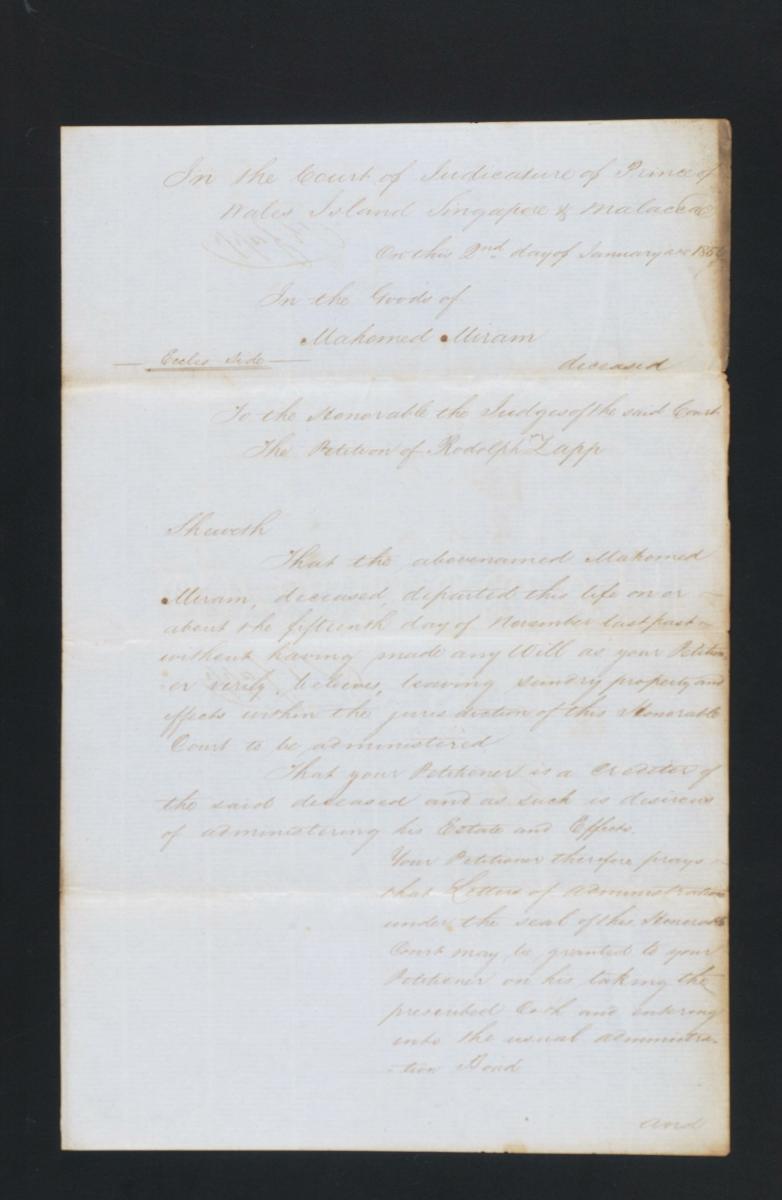 In the Court of Judicature of Prince of
Wales Island Singapore & Malacca
On this 2nd day of January
In the Goods of
Mahomed Miram
Eccles Side
deceased
To the Honorable the Judges of the said Court
The Petition of Rodolph Zapp
Sheweth
That the abovenamed Mahomed
Miram, deceased, departed this life on or
about the fifteenth day of November last past
without having made any Will as your Petition
er verily believes, leaving sundry property and
effects within the jurisdiction of this Honorable
Court to be administered
That your Petitioner is a Creditor of
the said deceased and as such is desirous
of administering his Estate and Effects.
Your Petitioner therefore prays
that Letters of Administration
under the seal of this Honorable
Court may be granted to your
Petitioner on his taking the
prescribed Oath and entering
into the usual administra-
-tion Bond
and